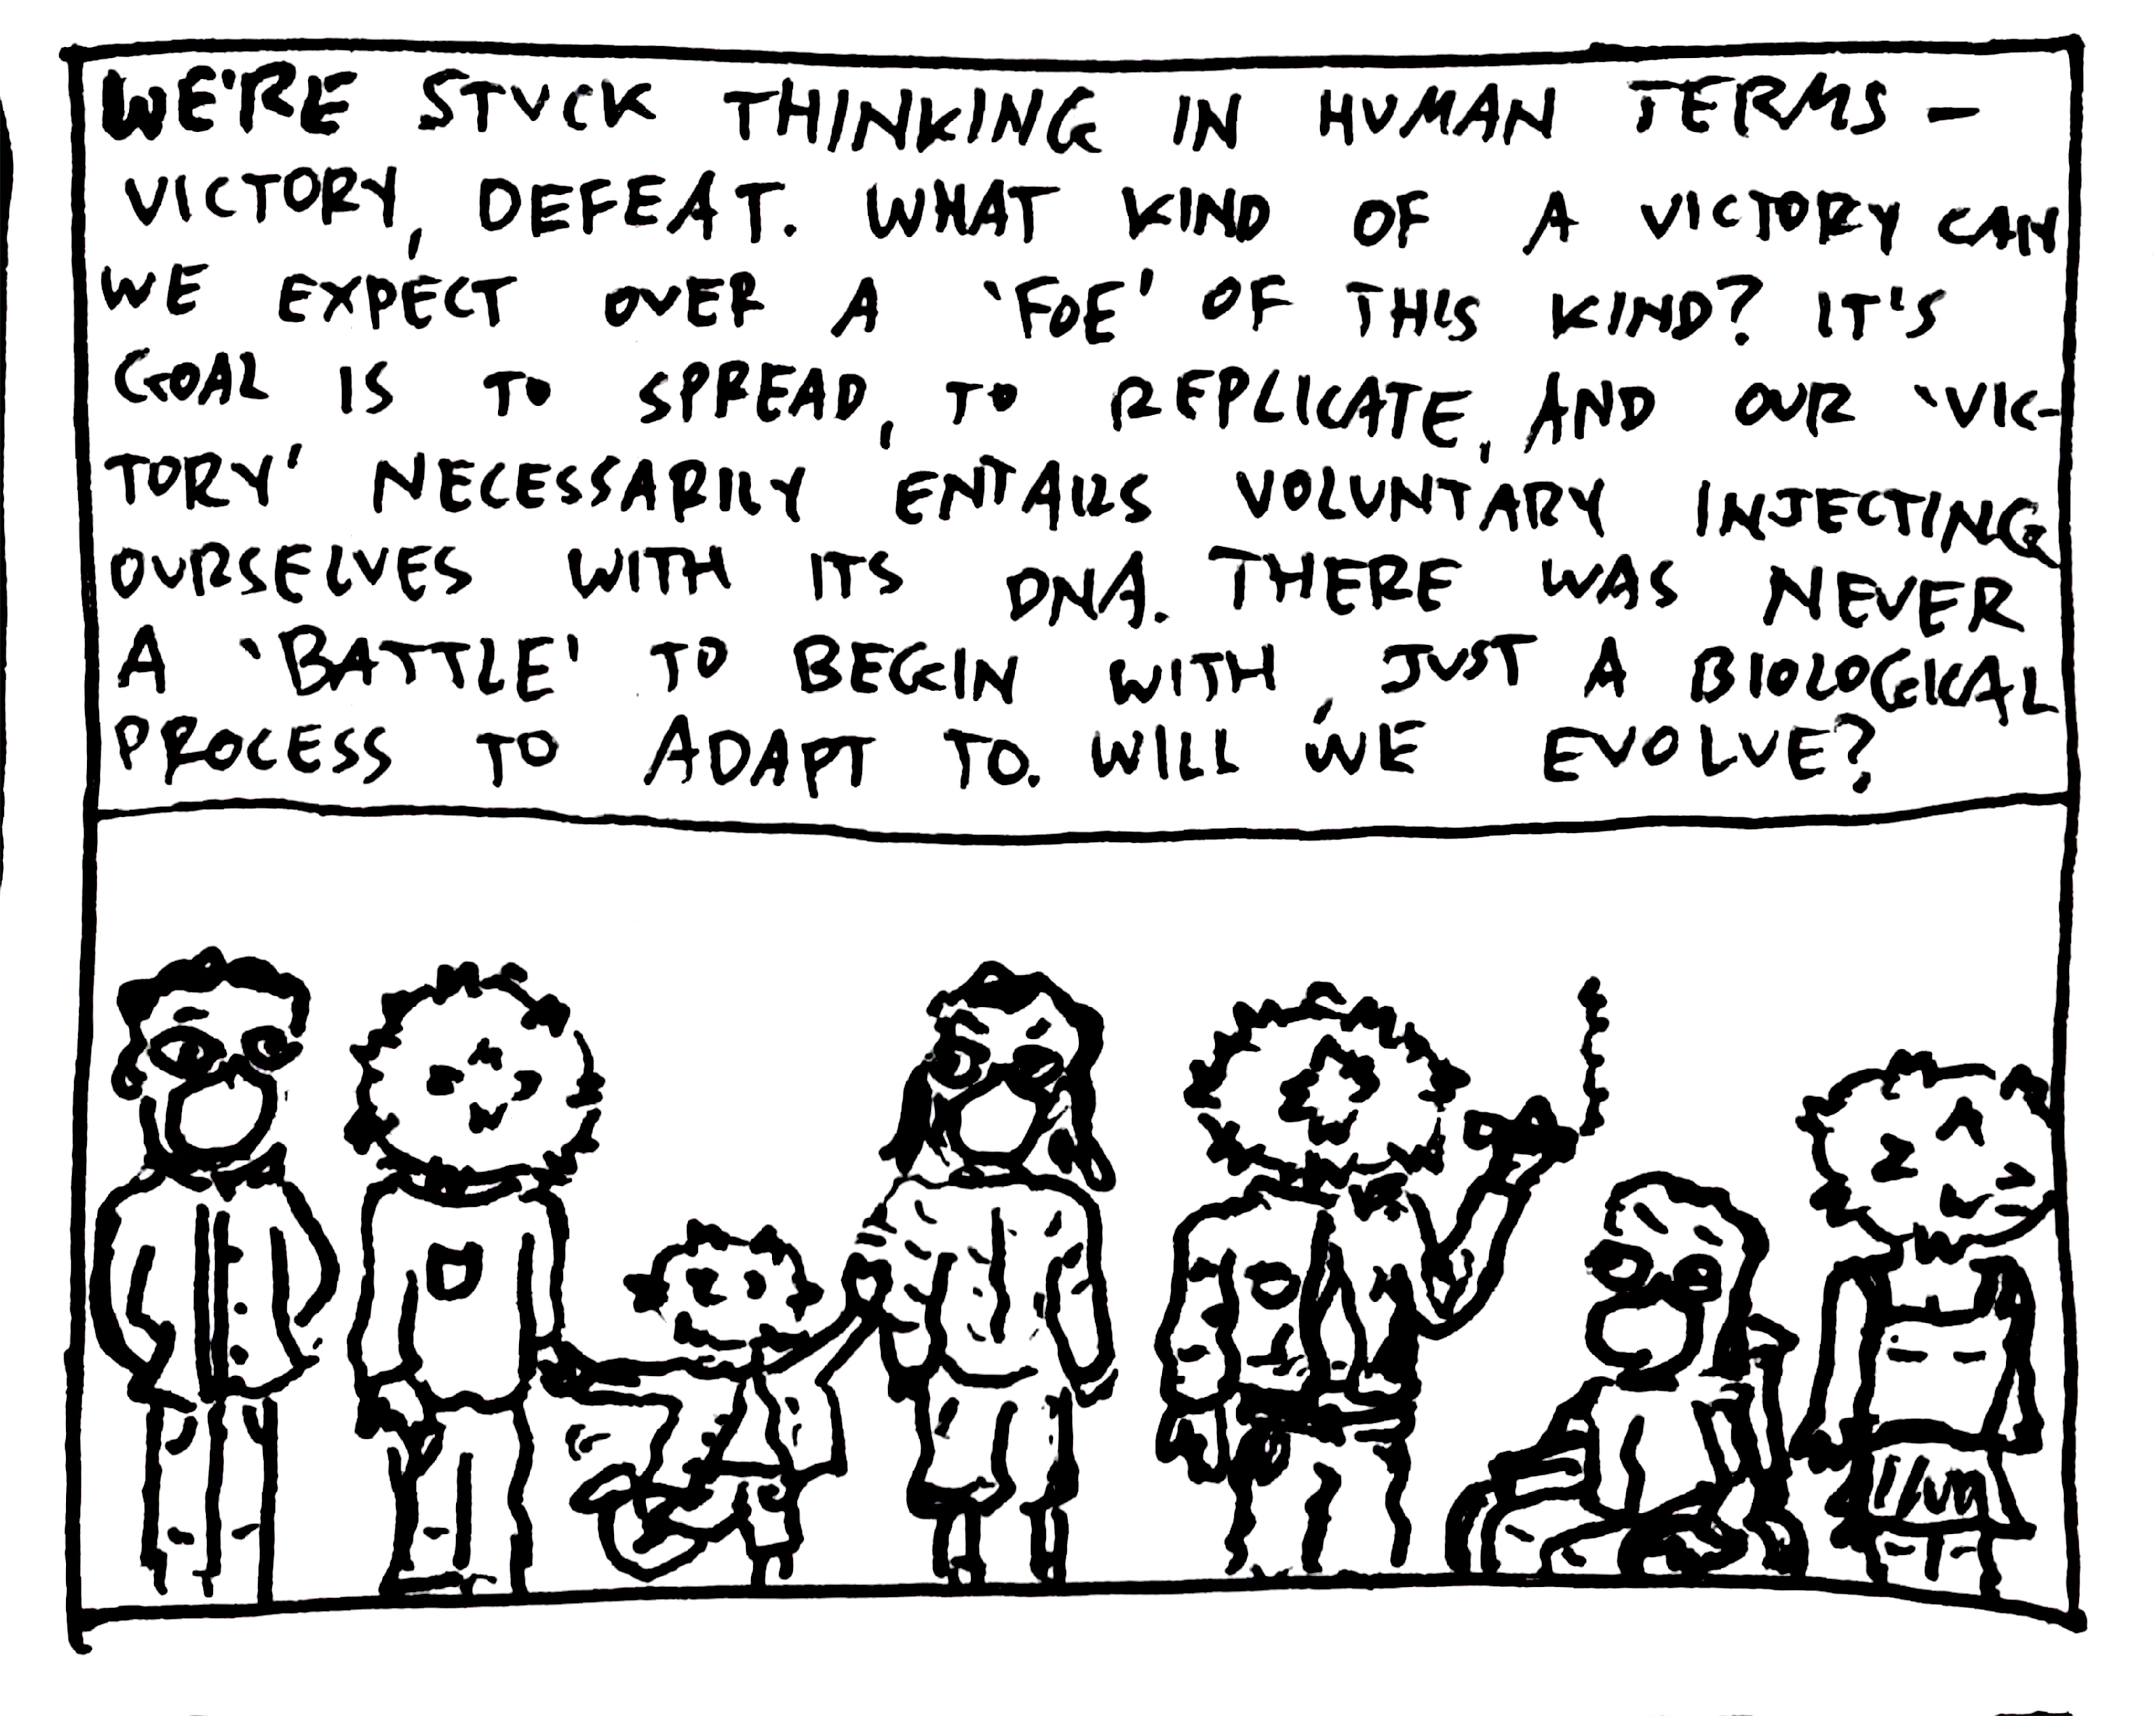 WE'RE STUCK THINKING IN HUMAN TERMS -
VICTORY, DEFEAT. WHAT KIND OF A VICTORY CAN
WE EXPECT OVER A 'FOE' OF THIS KIND? IT'S
GOAL IS TO SPREAD, TO REPLICATE, AND OUR 'VIC-
TORY' NECESSARILY ENTAILS VOLUNTARY INJECTING
OURSELVES WITH ITS DNA. THERE WAS NEVER
A 'BATTLE' TO BEGIN WITH, JUST A BIOLOGICAL
PROCESS TO ADAPT TO. WILL WE EVOLVE?